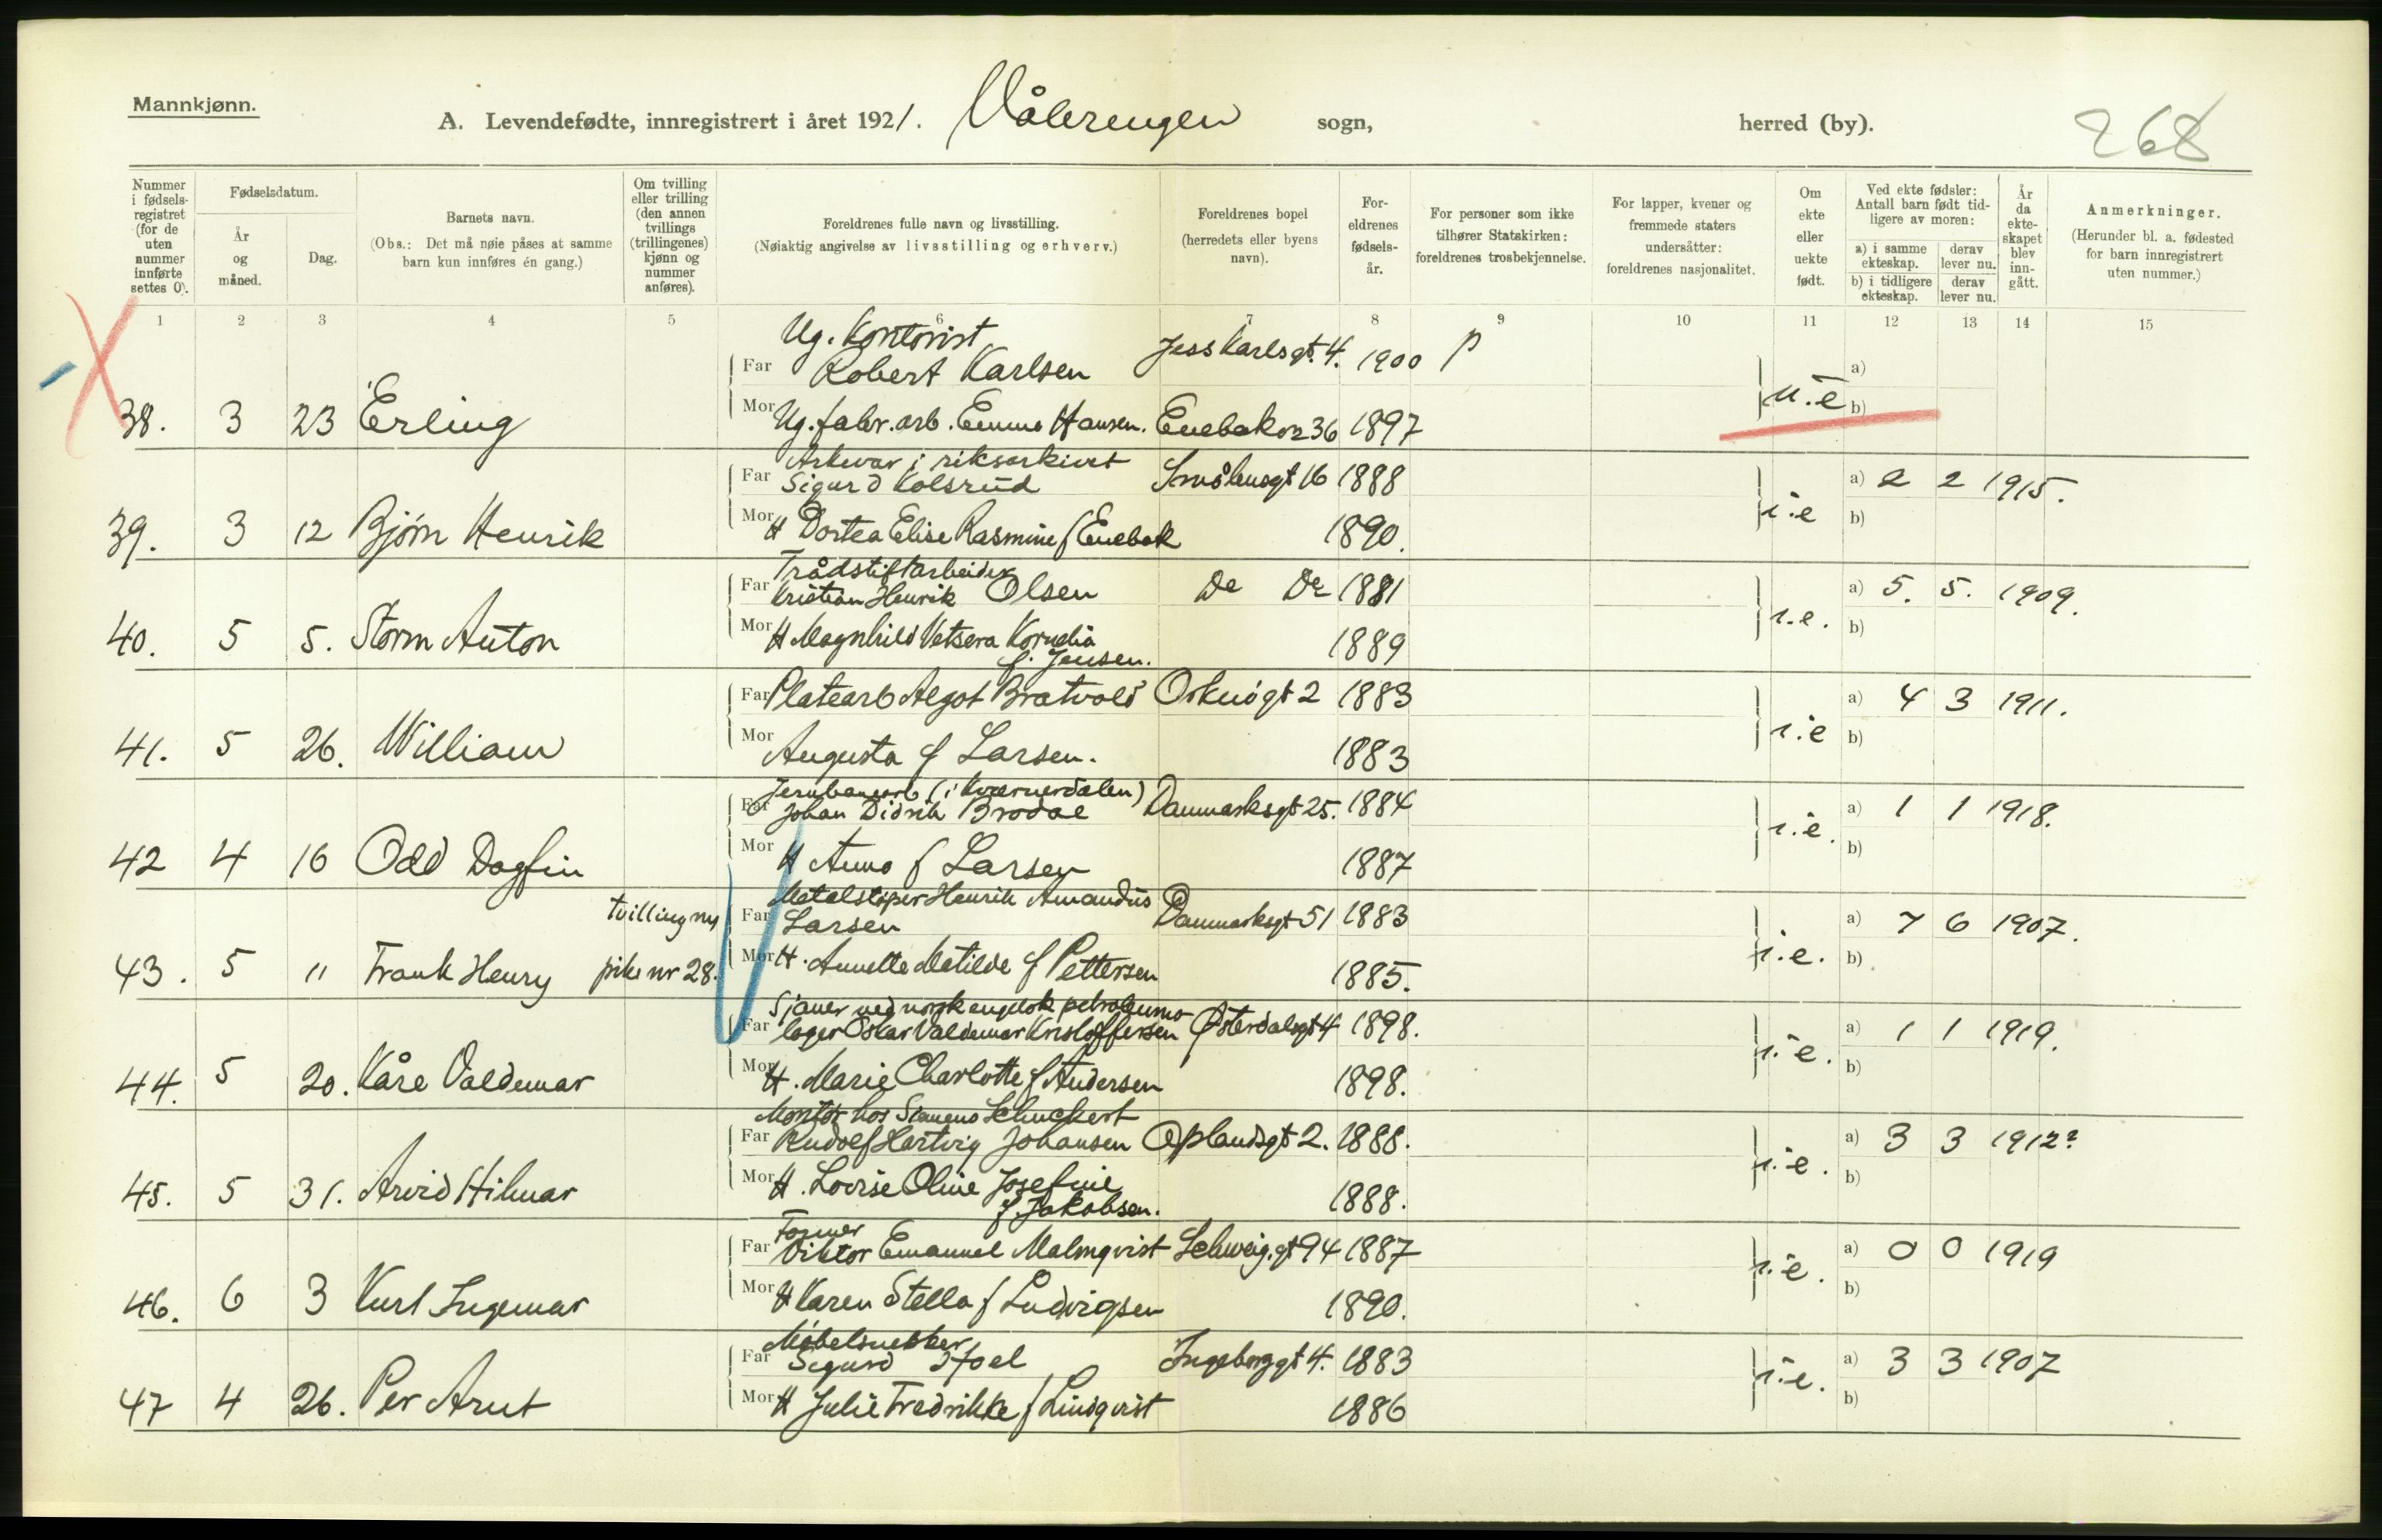 Mannkjønn.
A. Levendefødte, innregistrert i året 1921. Vålerengen sogn, herred (by). 268
Nummer i fødsels-registret (for de uten nummer innførte settes 0).
Fødselsdatum.
År og måned.
Dag.
Barnets navn.
(Obs.: Det må nøie påses at samme barn kun innføres én gang.)
Om tvilling eller trilling (den annen tvillings (trillingenes) kjønn og nummer anføres).
Foreldrenes fulle navn og livsstilling.
(Nøiaktig angivelse av livsstilling og erhverv.)
Foreldrenes bopel (herredets eller byens navn).
For-eldrenes fødsels-år.
For personer som ikke tilhører Statskirken: foreldrenes trosbekjennelse.
For lapper, kvener og fremmede staters undersåtter: foreldrenes nasjonalitet.
Om ekte eller uekte født.
Ved ekte fødsler: Antall barn født tid-ligere av moren:
a) i samme ekteskap. derav lever nu.
b) i tidligere ekteskap. derav lever nu.
År da ekte-skapet blev inn-gått.
Anmerkninger.
(Herunder bl. a. fødested for barn innregistrert uten nummer.)
1 2 3 4 5 6 7 8 9 10 11 12 13 14 15
Ug. Kontorist
Far Robert Karlsen Jess Karlsgt. 4. 1900 p a)
38. 3 23 Erling Mor Ug. fabr. arb. Emma Hansen. Enebakv 36 1897 u.e b)
Arkivar i riksarkivet
Far Sigurd Kolsrud Smålensgt 16 1888 a) 2 2 1915.
39. 3 12 Bjørn Henrik Mor H Dortea Elise Rasmine f Enebak 1890. i.e b)
Trådstiftarbeider
Far Kristian Henrik Olsen Do Do 1881 a) 5. 5. 1909.
40. 5 5. Storm Anton Mor H Magnhild Vetsera Kornelia 1889 i.e. b)
f. Jensen.
Far Platearb Algot Bratvold Oskusgt 2 1883 a) 4 3 1911.
41. 5 26. William Mor Augusta f Larsen. 1883 i.e b)
Jernbanearb (i Kværnerdalen)
Far Johan Didrik Brodal Danmarksgt 25. 1884 a) 1 1 1918.
42 4 16 Odd Dagfin Mor H Anna f Larsen 1887 i.e. b)
Metalstøper Henrik Amandus
tvilling m Far Larsen Danmarksgt 51 1883 a) 7 6 1907.
43. 5 11 Frank Henry pike nr 28. Mor H. Annette Matilde f Pettersen 1885. i.e. b)
Sjauer ved norsk engelsk petroleums-
Far lager Oskar Valdemar Kristoffersen Østerdalsgt 4 1898. a) 1 1 1919.
44. 5 20. Kåre Valdemar Mor H. Marie Charlotte f Andersen 1898. i.e. b)
Montør hos Siemens Schuckert
Far Rudolf Hartvig Johansen Oplandsgt 2. 1888. a) 3 3 1912?
45. 5 31. Arvid Hilmar Mor H. Lovise Oline Josefine 1888. i.e. b)
f. Jakobsen.
Former
Far Viktor Emanuel Malmqvist Schweig.gt 94 1887 a) 0 0 1919
46. 6 3 Kurt Ingemar Mor H Karen Stella f Ludvigsen 1890. i.e. b)
Møbelsnekker
Far Sigurd Hoel Ingeborggt 4. 1883 a) 3 3 1907
47 4 26. Per Arnt Mor H Julie Fredrikke f Lindqvist 1886 i.e. b)